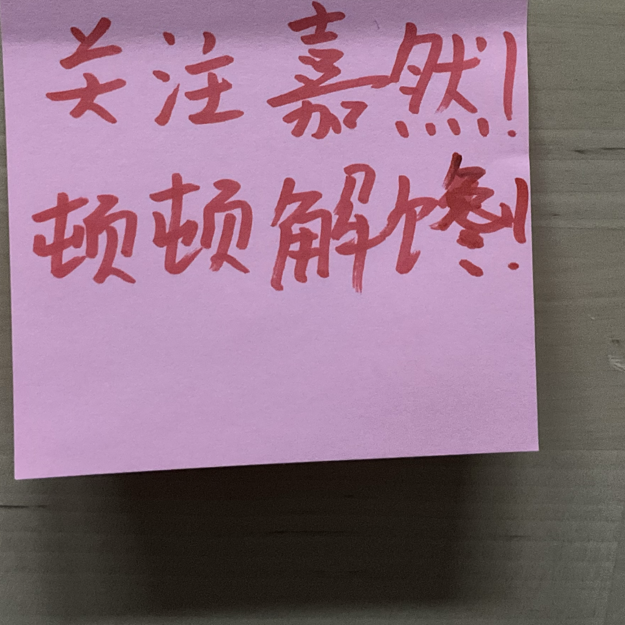 关注嘉然!
顿顿解馋!